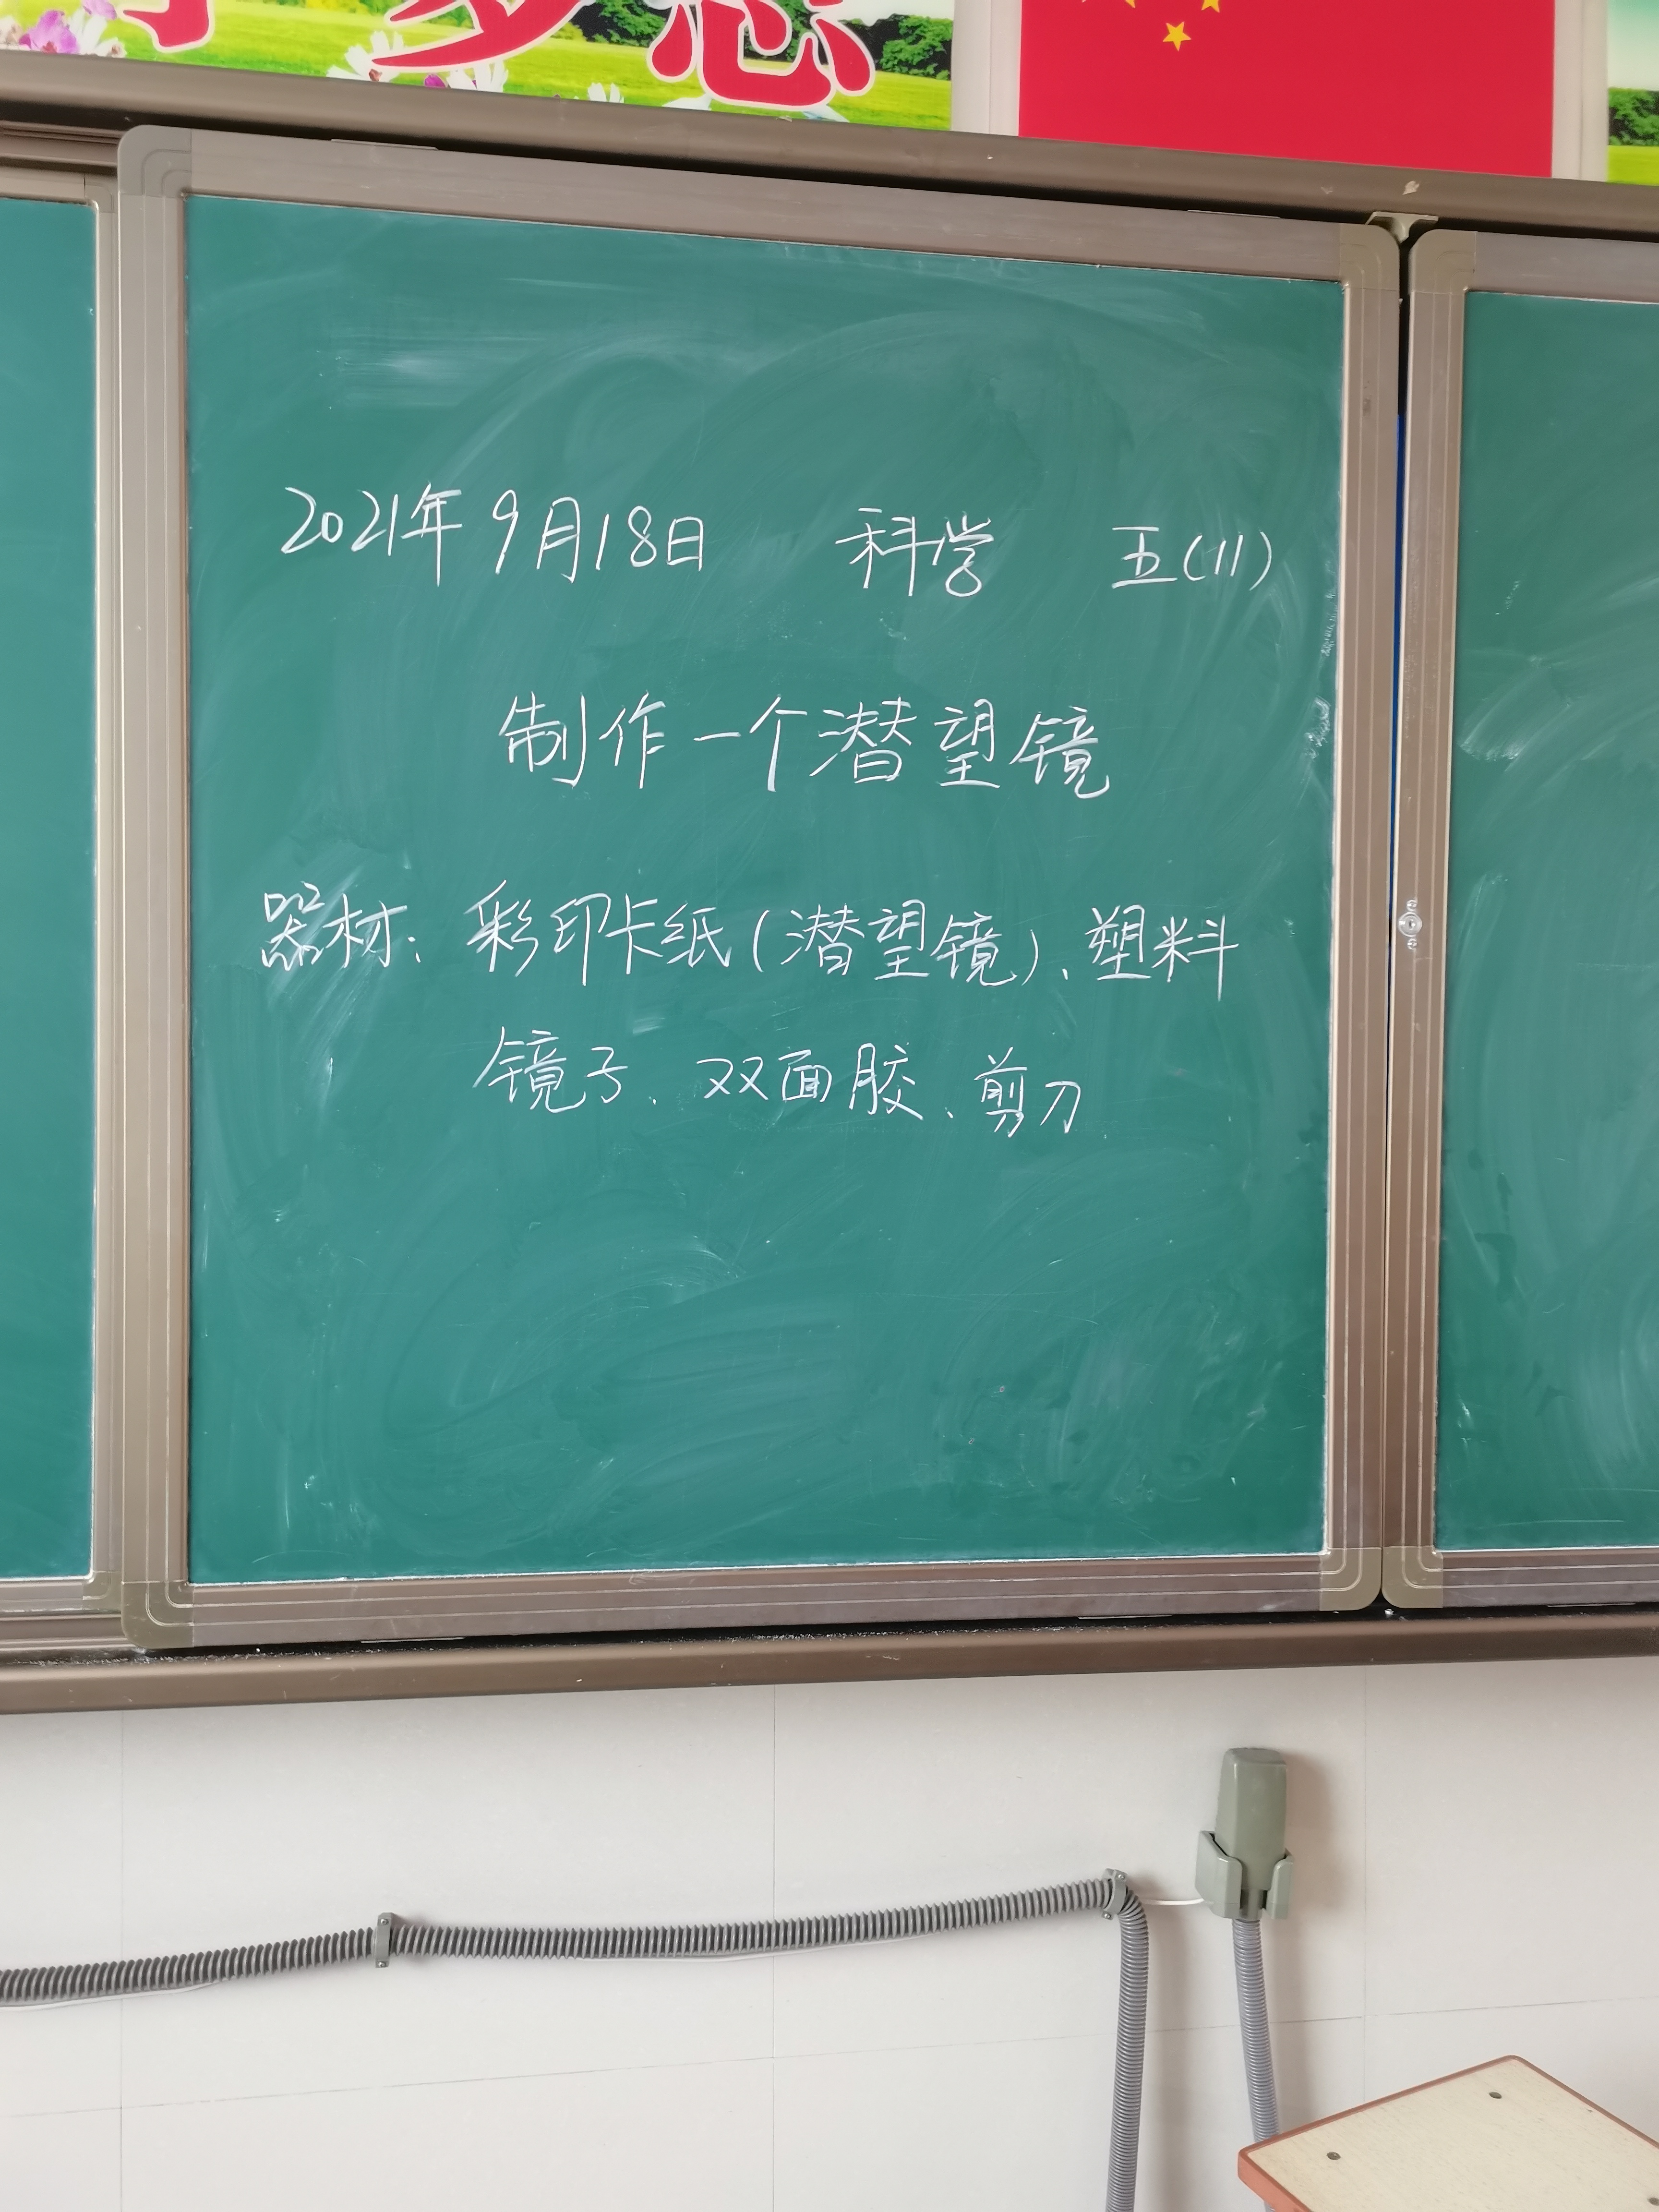 2021年9月18日 科学 五(11)
制作一个潜望镜
器材：彩印卡纸(潜望镜)、塑料
镜子、双面胶、剪刀